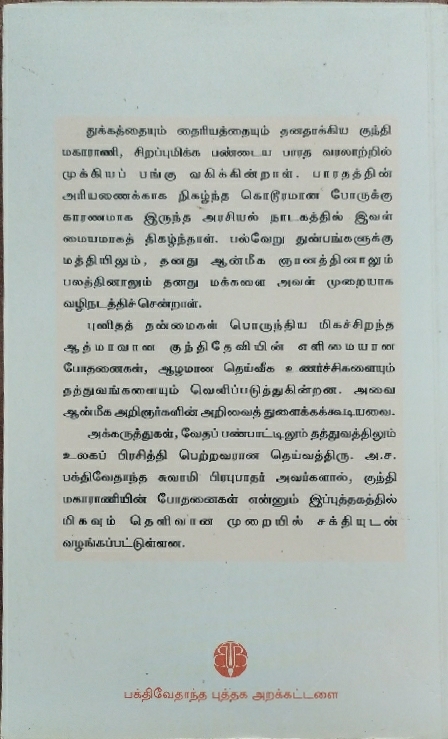 துக்கத்தையும் தைரியத்தையும் தனதாக்கிய குந்தி
மகாராணி, சிறப்புமிக்க பண்டைய பாரத வரலாற்றில்
முக்கியப் பங்கு வகிக்கின்றாள். பாரதத்தின்
அரியணைக்காக நிகழ்ந்த கொடூரமான போருக்கு
காரணமாக இருந்த அரசியல் நாடகத்தில் இவள்
மையமாகத் திகழ்ந்தாள். பல்வேறு துன்பங்களுக்கு
மத்தியிலும், தனது ஆன்மீக ஞானத்தினாலும்
பலத்தினாலும் தனது மக்களை அவள் முறையாக
வழிநடத்திச் சென்றாள்.
புனிதத் தன்மைகள் பொருந்திய மிகச்சிறந்த
ஆத்மாவான குந்திதேவியின் எளிமையான
போதனைகள், ஆழமான தெய்வீக உணர்ச்சிகளையும்
தத்துவங்களையும் வெளிப்படுத்துகின்றன. அவை
ஆன்மீக அறிஞர்களின் அறிவைத் துளைக்கக்கூடியவை.
அக்கருத்துகள், வேதப் பண்பாட்டிலும் தத்துவத்திலும்
உலகப் பிரசித்தி பெற்றவரான தெய்வத்திரு. அ.ச.
பக்திவேதாந்த சுவாமி பிரபுபாதர் அவர்களால், குந்தி
மகாராணியின் போதனைகள் என்னும் இப்புத்தகத்தில்
மிகவும் தெளிவான முறையில் சக்தியுடன்
வழங்கப்பட்டுள்ளன.
பக்திவேதாந்த புத்தக அறக்கட்டளை